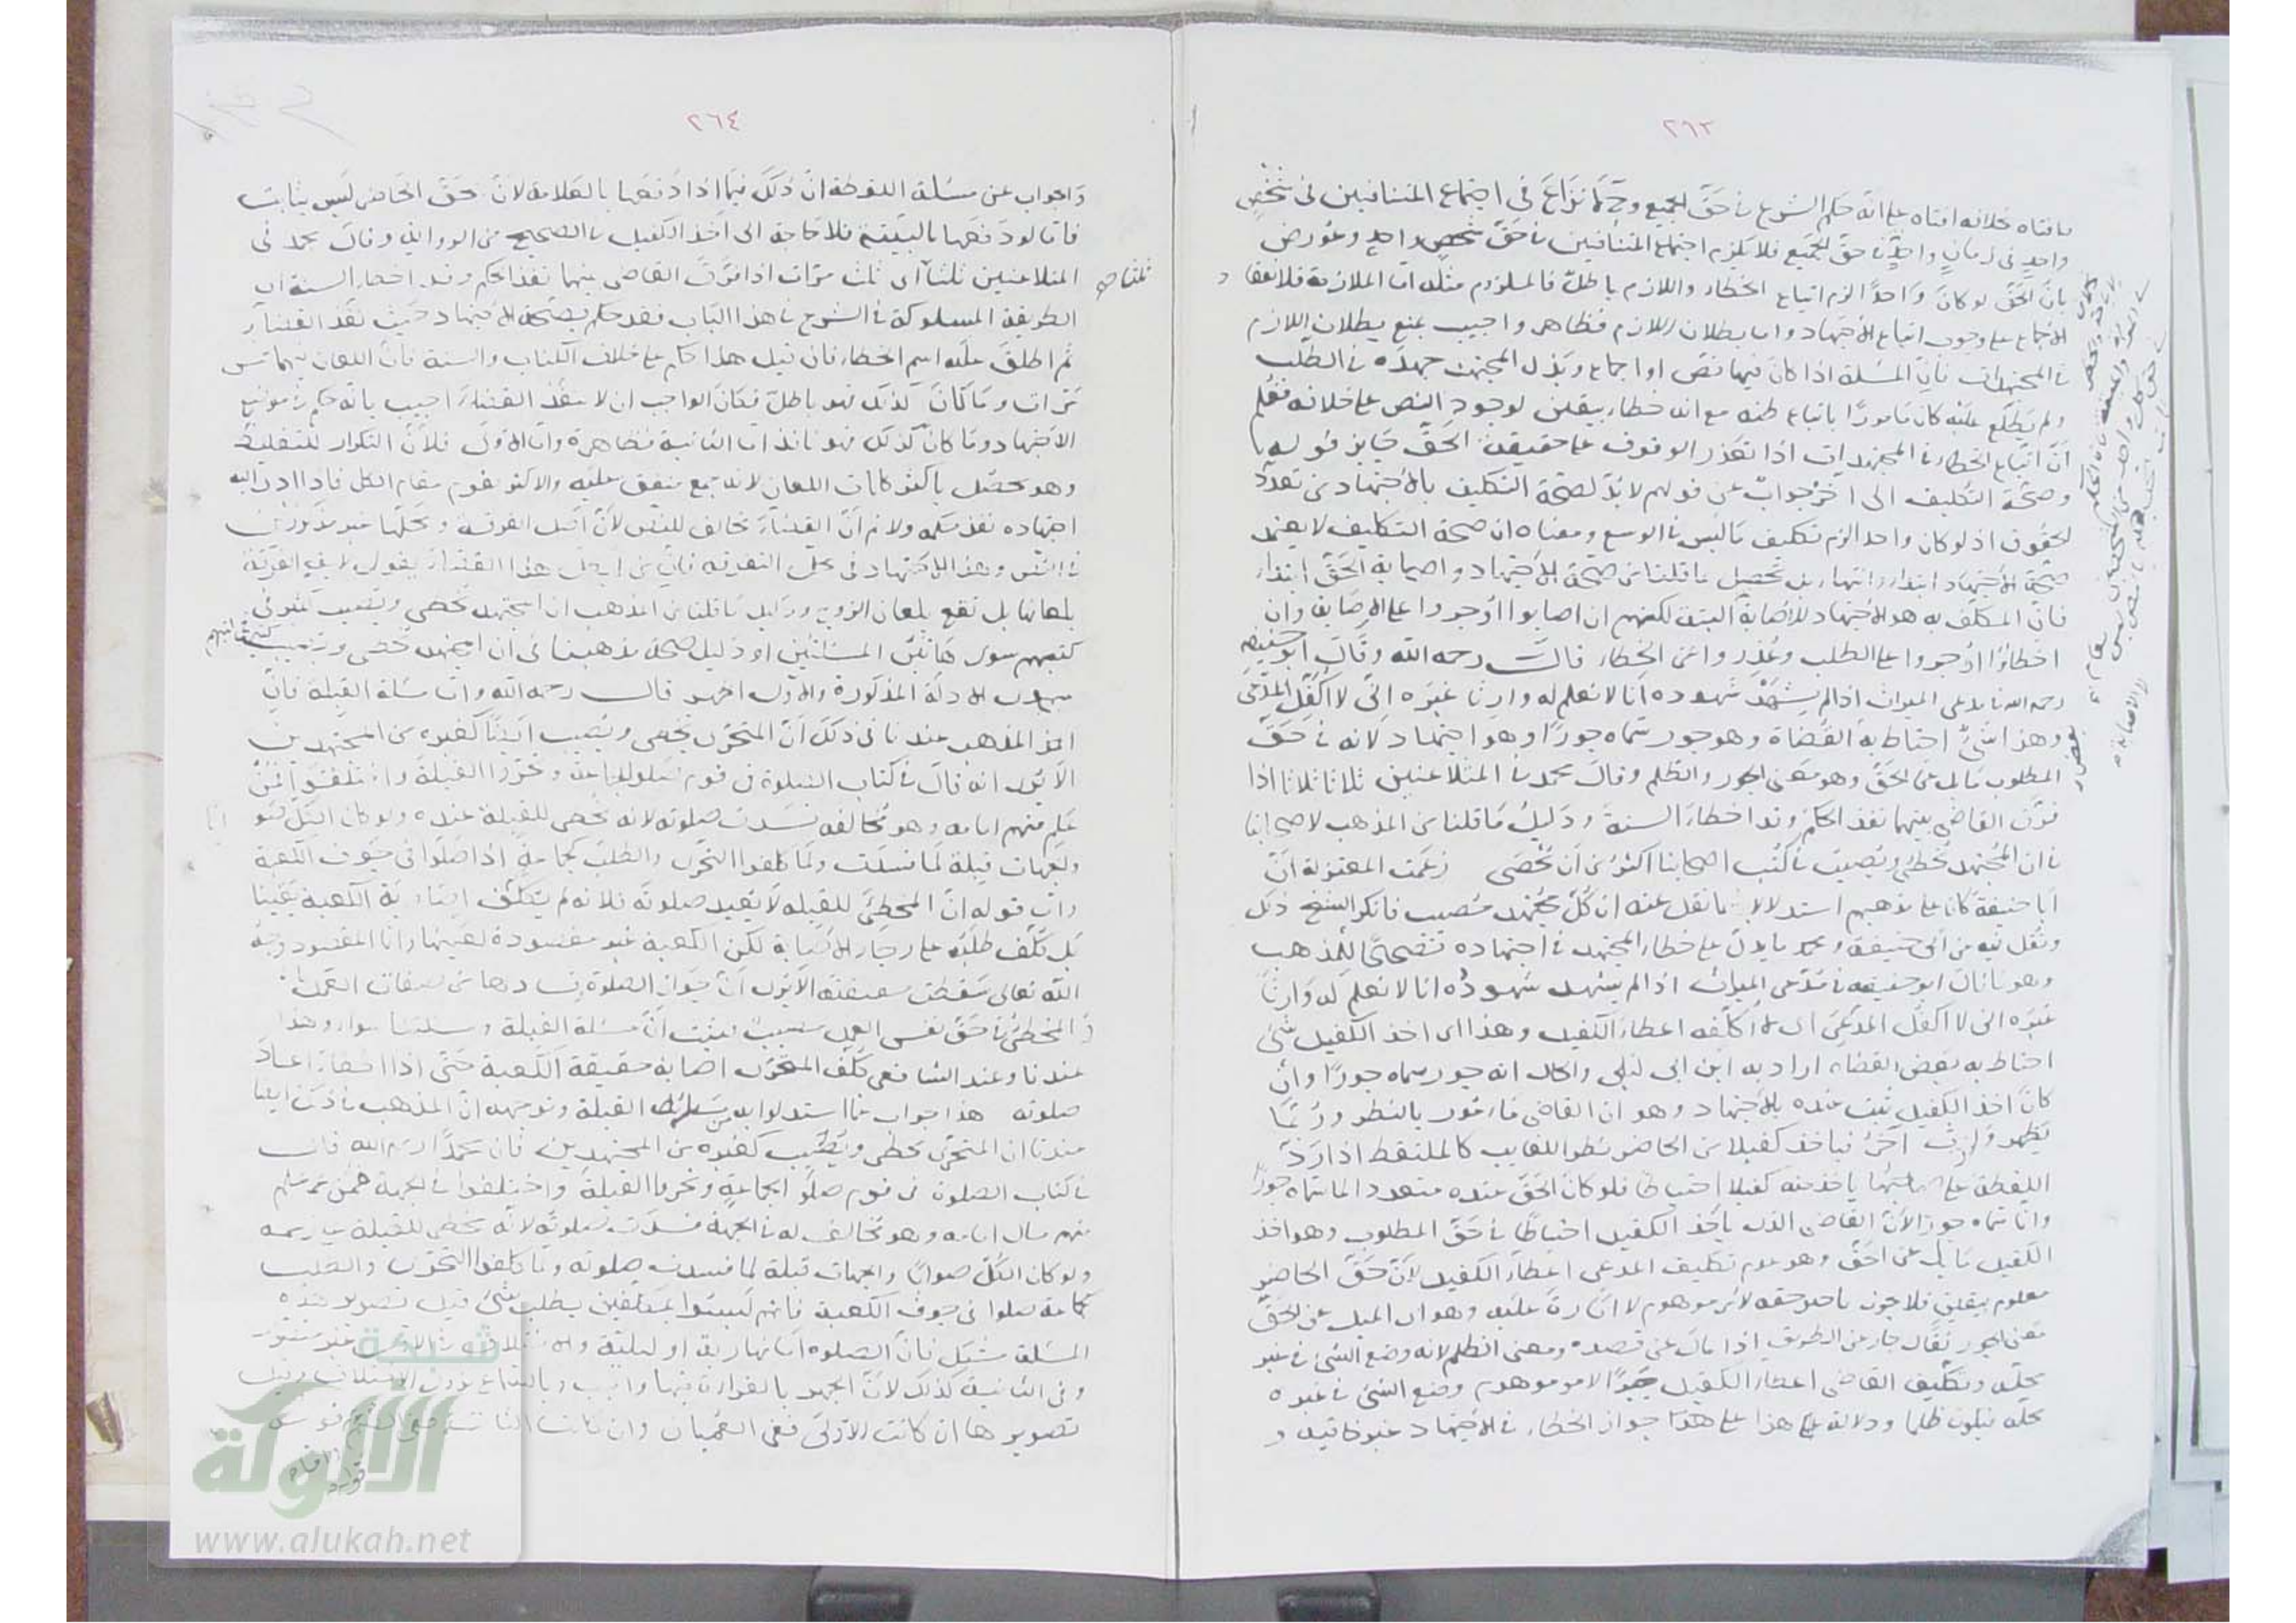 ٢٦٣
ما فتاه بخلافه افتاه على انه حكم الشرع في حق الجميع وح لا نزاع في اجتماع المتنافيين في شخص
واحد في زمان واحد في حق الجميع فلا يلزم اجتماع المتنافيين في حق شخص واحد وعورض
بان الحق لو كان واحدا لزم اتباع الخطاء واللازم باطل فالملزوم مثله اما الملازمة فلانعقا د
الاجماع على وجوب اتباع الاجتهاد واما بطلان اللازم فظاهر واجيب بمنع بطلان اللازم
في المجتهدات فان المسئلة اذا كان فيها نص او اجماع وبذل المجتهد جهده في الطلب
ولم يطلع عليه كان مأمورا باتباع ظنه مع انه خطاء بيقين لوجود النص على خلافه فعلم
ان اتباع الخطاء في المجتهدات اذا تعذر الوقوف على حقيقة الحق جايز قوله
وصحة التكليف الى اخره جواب عن قولهم لا بد لصحة التكليف بالاجتهاد من تعدد
الحقوق اذ لو كان واحد الزم تكليف ما ليس في الوسع ومعناه ان صحة التكليف لا يعتمد
صحة الاجتهاد ابتداء وانتهاء بل تحصيل ما قلنا من صحة الاجتهاد واصابة الحق ابتداء
فان المكلف به هو الاجتهاد للاصابة البتة لكنهم ان اصابوا اوجروا على الاصابة وان
اخطاؤا اوجروا على الطلب وعذروا عن الخطاء قال رحمه الله وقال ابو حنيفة
رحمه الله في مدعي الميراث اذا لم يشهد شهوده انا لا نعلم له وارثا غيره اني لا اكفل المدعي
وهذا شئ احتاط به القضاة وهو جور سماه جورا وهو اجتهاد لانه في حق
المطلوب مايل عن الحق وهو معنى الجور والظلم وقال محمد في المتلاعنين ثلاثا ثلاثا اذا
فرق القاضي بينهما نفذ الحكم وقد اخطاء السنة ودليل ما قلنا من المذهب لاصحابنا
في ان المجتهد يخطئ ويصيب في كتب اصحابنا اكثر من ان تحصى زعمت المعتزلة ان
ابا حنيفة كان على مذهبهم استدلالا بما نقل عنه ان كل مجتهد مصيب فانكر الشيخ ذلك
ونقل فيه عن ابي حنيفة ومحمد ما يدل على خطاء المجتهد في اجتهاده تصحيحا للمذهب
وهو ما قال ابو حنيفة في مدعي الميراث اذا لم يشهد شهوده انا لا نعلم له وارثا
غيره اني لا اكفل المدعي اي لا اكلفه اعطاء الكفيل وهذا اى اخذ الكفيل شئ
احتاط به بعض القضاه اراد به ابن ابي ليلى والحال انه جور سماه جورا وان
كان اخذ الكفيل ثبت عنده بالاجتهاد وهو ان القاضي مأمور بالنظر وربما
يظهر وارث آخر فيأخذ كفيلا من الحاضر نظرا للغايب كالملتقط اذا رد
اللقطة على صاحبها يأخذ منه كفيلا احتياطا فلو كان الحق عنده متعددا لما سماه جورا
وانما سماه جورا لان القاضي الذي يأخذ الكفيل احتياطا في حق المطلوب وهو اخذ
الكفيل مايل عن الحق وهو عدم تكليف المدعي اعطاء الكفيل لان حق الحاضر
معلوم بيقين فلا يجوز تأخير حقه لامر موهوم لا امارة عليه وهو اى الميل عن الحق
معنى الجور يقال جار عن الطريق اذا مال عن قصده ومعنى الظلم لانه وضع الشئ في غير
محله وتكليف القاضي اعطاء الكفيل لامر موهوم وضع الشئ في غير
محله فيكون ظلما ودلالة هذا على جواز الخطاء في الاجتهاد غير خافية و
٢٦٤
واجواب عن مسئلة اللقطة ان ذلك فيما اذا دفعها بالعلامة لان حق الحاضر ليس بثابت
فاما لو دفعها بالبينة فلا حاجة الى اخذ الكفيل في الصحيح من الرواية وقال محمد في
المتلاعنين ثلثا اى ثلث مرات اذا فرق القاضي بينهما نفذ الحكم وقد اخطاء السنة اى
الطريقة المسلوكة في الشرع في هذا الباب فقد حكم بصحة الاجتهاد حيث نفذ القضاء
ثم اطلق عليه اسم الخطاء فان قيل هذا حكم على خلاف الكتاب والسنة فان اللعان فيهما خمس
مرات وما كان كذلك فهو باطل فكان الواجب ان لا ينفذ القضاء اجيب بانه حكم في موضع
الاجتهاد وما كان كذلك فهو نافذ اما الثانية فظاهرة واما الاولى فلان التكرار للتغليظ
وهو يحصل باكثر كلمات اللعان لانه جمع متفق عليه والاكثر يقوم مقام الكل فاذا ادى اليه
اجتهاده نفذ حكمه ولا نم ان القضاء مخالف للنص لان اصل الفرقة ومحلها غير مذكورين
في النص وهذا الاجتهاد في محل التفرقة فان من ابطل هذا القضاء يقول لا يقع الفرقة
بلعانها بل تقع بلعان الزوج ودليل ما قلنا من المذهب ان المجتهد يخطئ ويصيب كثير في
كتبهم سوى هاتين المسئلتين او دليل صحة مذهبنا في ان المجتهد يخطئ ويصيب
الادلة المذكورة والاول اظهر قال رحمه الله واما مسئلة القبلة فان
المذهب عندنا في ذلك ان المتحرى يخطئ ويصيب ايضا كغيره من المجتهدين
الا يرى انه قال في كتاب الصلوة في قوم صلوا جماعة وتحروا القبلة واختلفوا فمن
علم منهم امامه وهو مخالفه فسدت صلوته لانه مخطئ للقبلة عنده ولو كان الكل صوابا
والجهات قبلة لما فسدت ولما كلفوا التحرى والطلب كجماعة اذا صلوا في جوف الكعبة
واما قوله ان المخطئ للقبلة لا يعيد صلوته فلانه لم يتكلف اصابة الكعبة يقينا
بل كلف طلبه على رجاء الاصابة لكن الكعبة غير مقصودة لعينها وانما المقصود وجه
الله تعالى الا يرى ان جواز الصلوة وفسادها من صفات العمل
والمخطئ في حق نفس العمل مصيب فثبت ان مسئلة القبلة ومسئلتنا سواء وهذا
عندنا وعند الشافعي كلف المتحرى اصابة حقيقة الكعبة حتى اذا اخطاء اعاد
صلوته هذا جواب عما استدلوا به من مسئلة القبلة وتوجيهه ان المذهب في ذلك ايضا
عندنا ان المتحرى يخطى ويصيب كغيره من المجتهدين فان محمدا رحمه الله قال
في كتاب الصلوة في قوم صلوا بجماعة وتحروا القبلة واختلفوا في الجهة فمن علم
منهم حال امامه وهو مخالف له في الجهة فسدت صلوته لانه مخطئ للقبلة في زعمه
ولو كان الكل صوابا والجهات قبلة لما فسدت صلوته وما كلفوا التحرى والطلب
كجماعة صلوا في جوف الكعبة فانهم ليسوا بمكلفين بطلب شئ قيل تصوير هذه
المسئلة مشكل فان الصلوه اما نهارية او ليلية والاختلاف في الاولى غير متصور
وفي الثانية كذلك لان الجهر بالقراءة فيها واجب وبالسماع يزول الاختلاف وقيل
تصويرها ان كانت الاولى ففي العميان وان كانت الثانية
شبكة
الألوكة
www.alukah.net